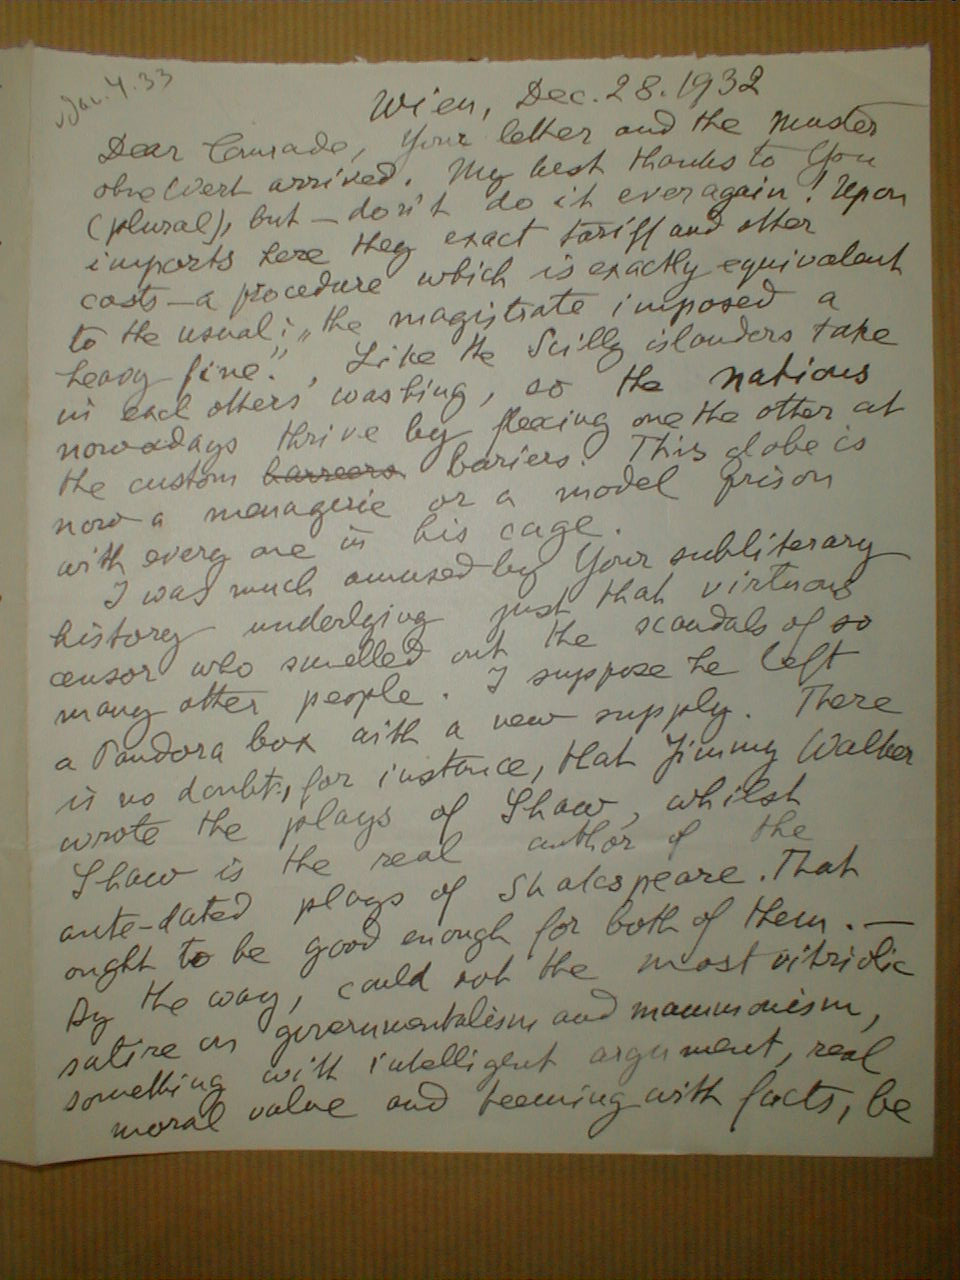 Jan. 4. 33
Wien, Dec. 28. 1932
Dear Comrade, Your letter and the Muster
ohne Wert arrived. My best thanks to You
(plural), but — don't do it ever again! Upon
imports here they exact tariff and other
costs — a procedure which is exactly equivalent
to the usual: „the magistrate imposed a
heavy fine." Like the Scilly islanders take
in each others' washing, so the nations
nowadays thrive by fleecing one the other at
the custom barreers bariers. This globe is
now a menagerie or a model prison
with every one in his cage.
I was much amused by Your subliterary
history underlying just that virtuous
censor who smelled out the scandals of so
many other people. I suppose he left
a Pandora box with a new supply. There
is no doubt, for instance, that Jimmy Walker
wrote the plays of Shaw, whilst
Shaw is the real author of the
ante-dated plays of Shakspeare. That
ought to be good enough for both of them. —
By the way, could not the most vitriolic
satire on governmentalism and mammonism,
something with intelligent argument, real
moral value and teeming with facts, be